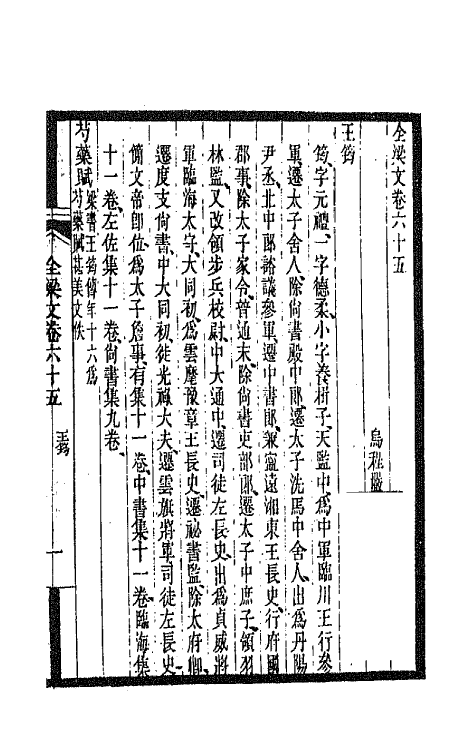 全梁文卷六十五
烏程嚴
王筠
筠字元禮、一字德柔、小字養、天監中、爲中軍臨川王行參
軍、遷太子舍人、除尚書殿中郎、遷太子洗馬、中舍人、出爲丹陽
尹丞、北中郎諮議參軍、遷中書郎、兼寧遠湘東王長史、行府國
郡事、除太子家令、普通末、除尚書吏部郎、遷太子中庶子、領羽
林監、又改領步兵校尉、中大通中、遷司徒左長史、出爲貞威將
軍臨海太守、大同初、雲麾豫章王長史、遷祕書監、除太府卿、
遷度支尚書、中大同初、徙光祿大夫、遷雲旗將軍司徒左長史、
簡文帝卽位、爲太子詹事、有集十一卷、中書集十一卷、臨海集
十一卷、左佐集十一卷、尚書集九卷、
芍藥賦 梁書王筠傳年十六爲
芍藥賦甚美文佚
全梁文卷六十五
王筠
一